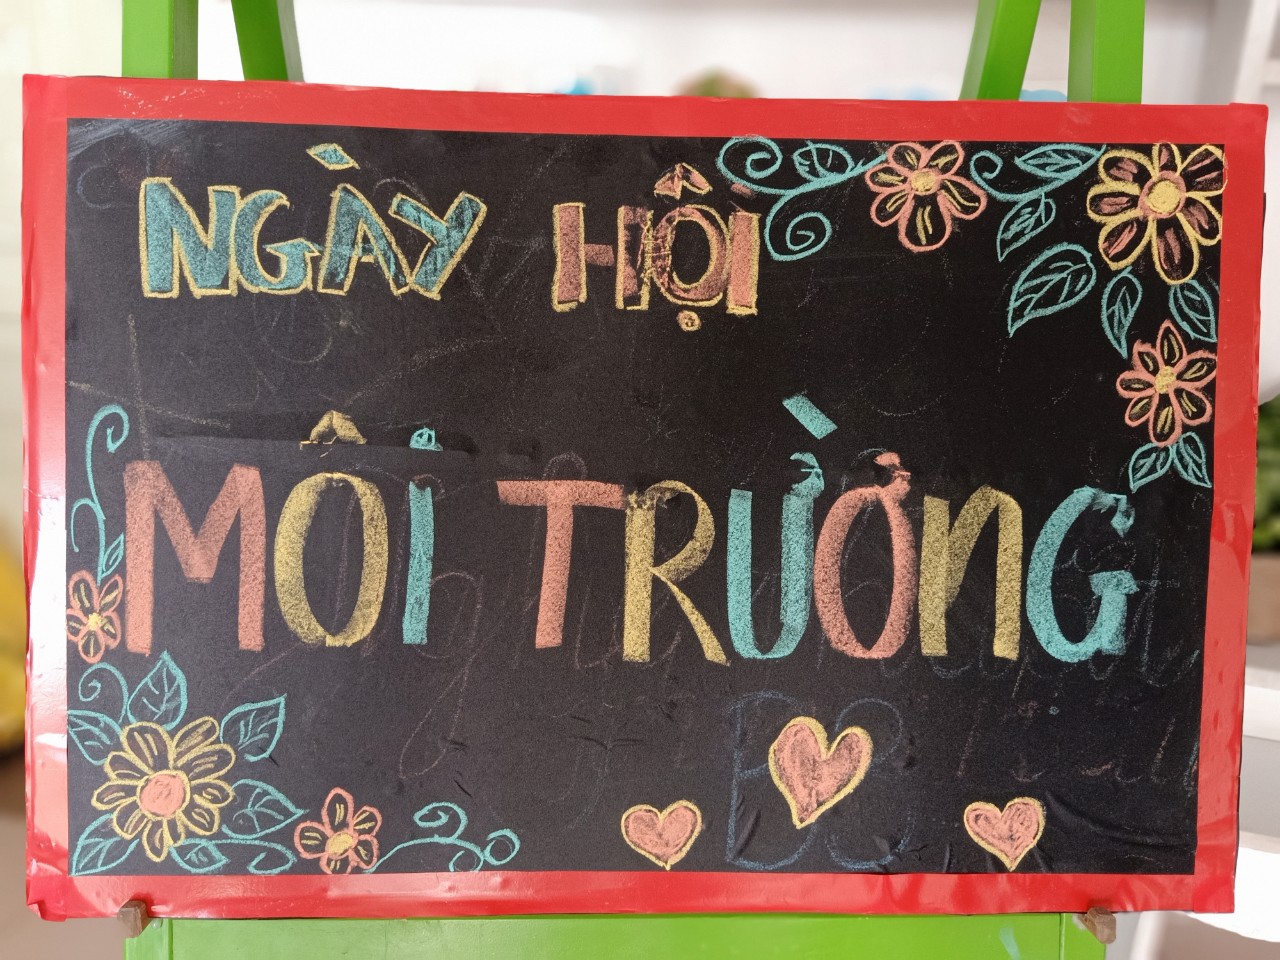 NGÀY HỘI
MÔI TRƯỜNG